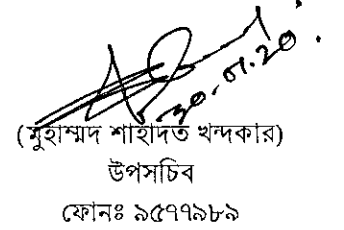 ৩০.০১.২০
(মুহাম্মদ শাহাদত খন্দকার)
উপসচিব
ফোনঃ ৯৫৭৭৯৮৯